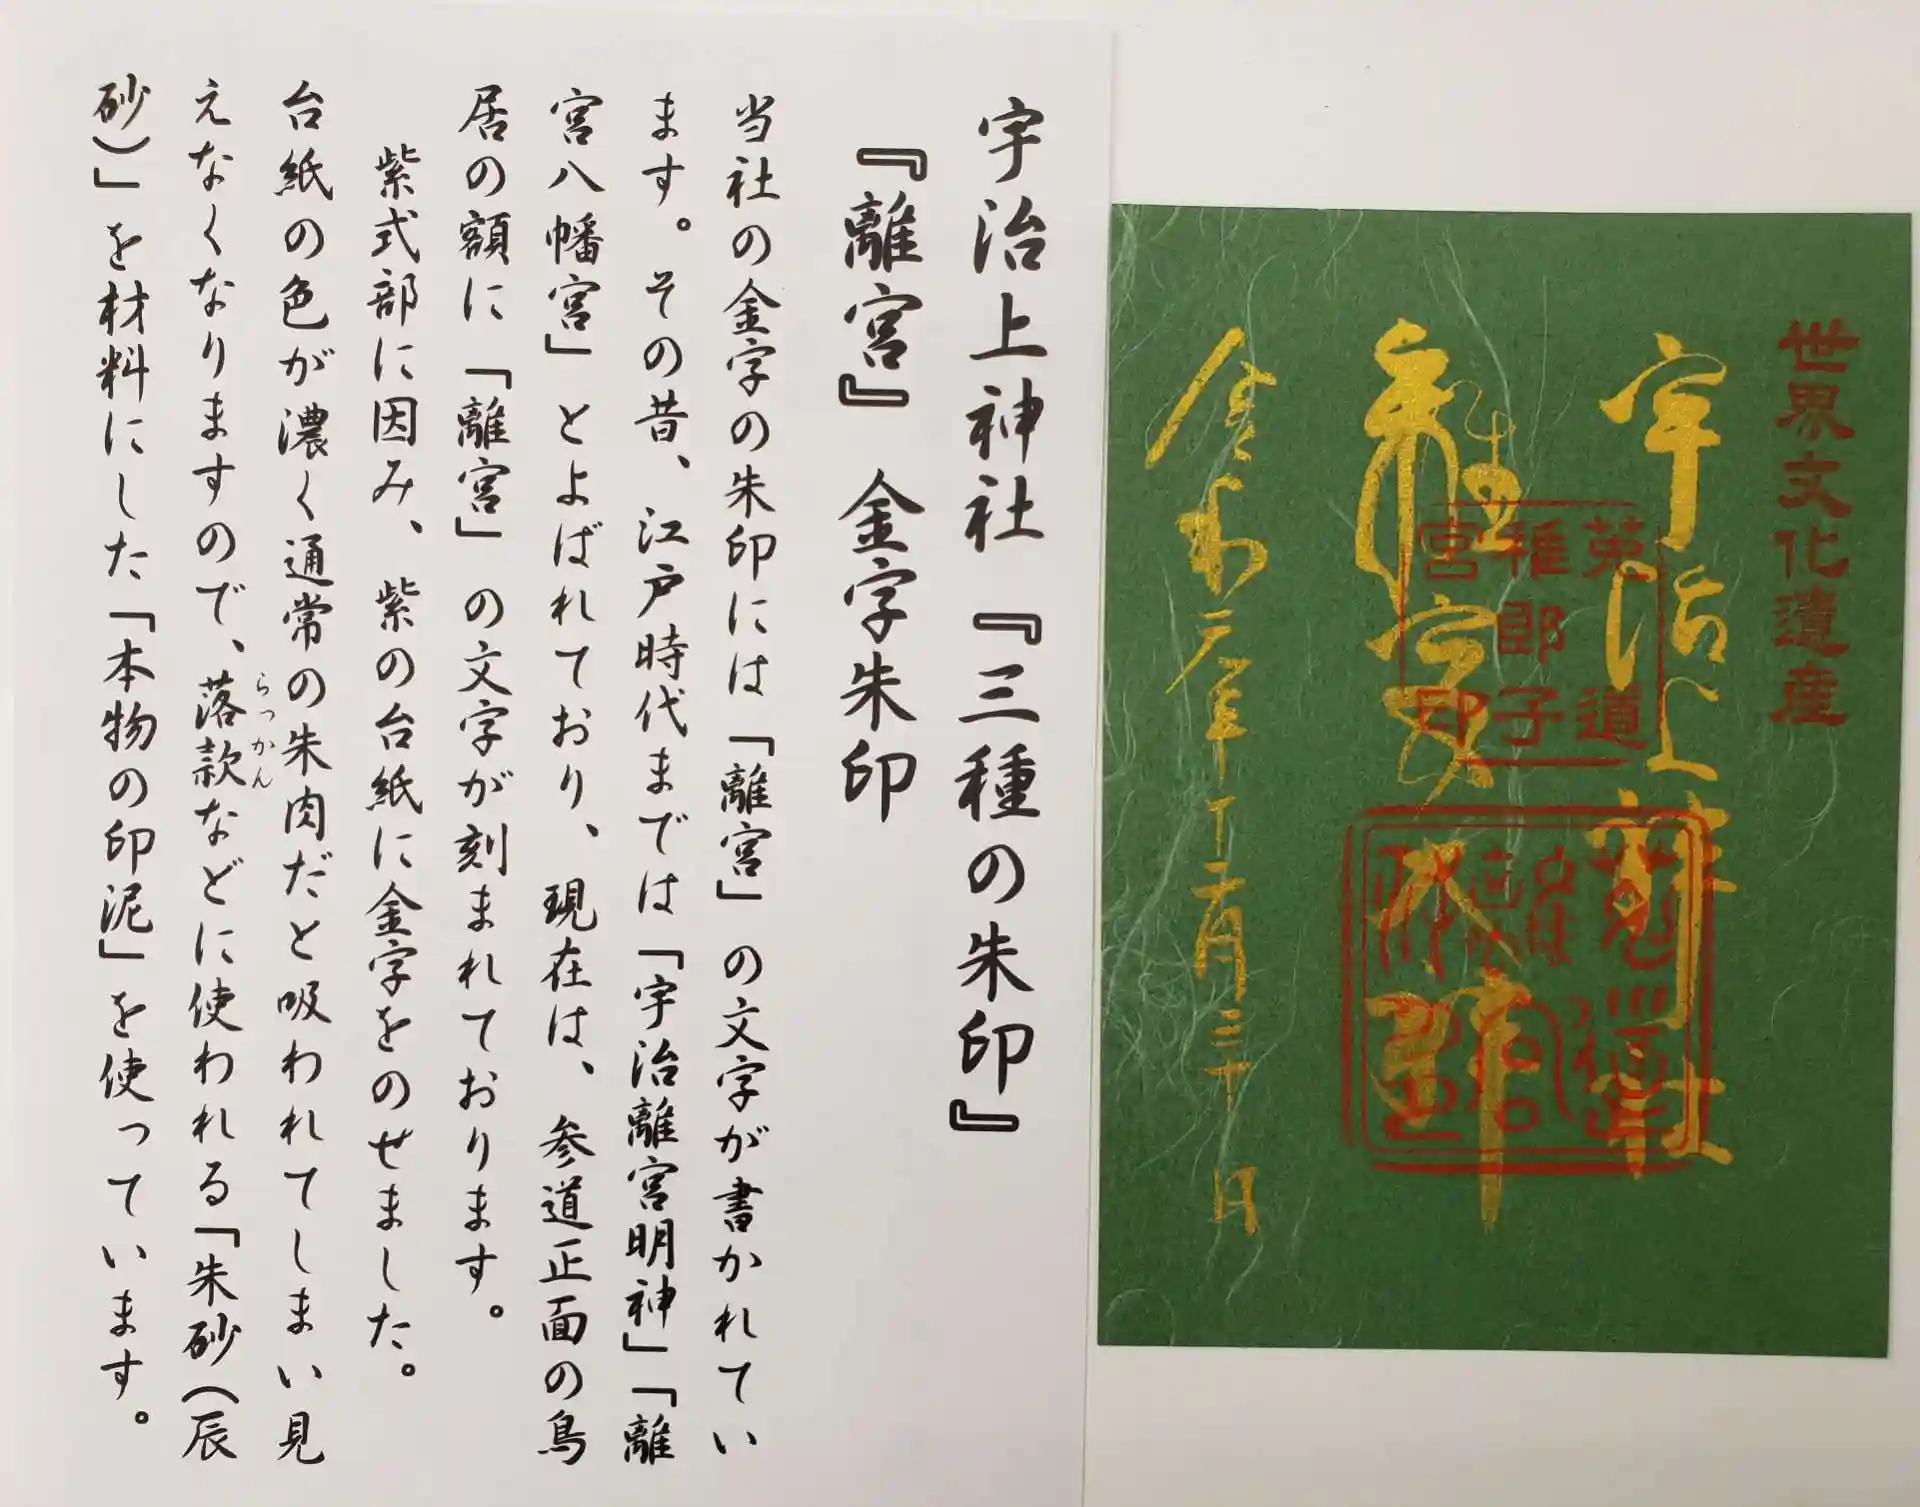 世界文化遺産
宇治上神社
離宮八幡
菟道
稚郎子
宮印
令和元年十二月三十日
宇治上神社『三種の朱印』
『離宮』金字朱印
当社の金字の朱印には「離宮」の文字が書かれてい
ます。その昔、江戸時代までは「宇治離宮明神」「離
宮八幡宮」とよばれており、現在は、参道正面の鳥
居の額に「離宮」の文字が刻まれております。
紫式部に因み、紫の台紙に金字をのせました。
台紙の色が濃く通常の朱肉だと吸われてしまい見
えなくなりますので、落款などに使われる「朱砂(辰
らっかん
砂)」を材料にした「本物の印泥」を使っています。